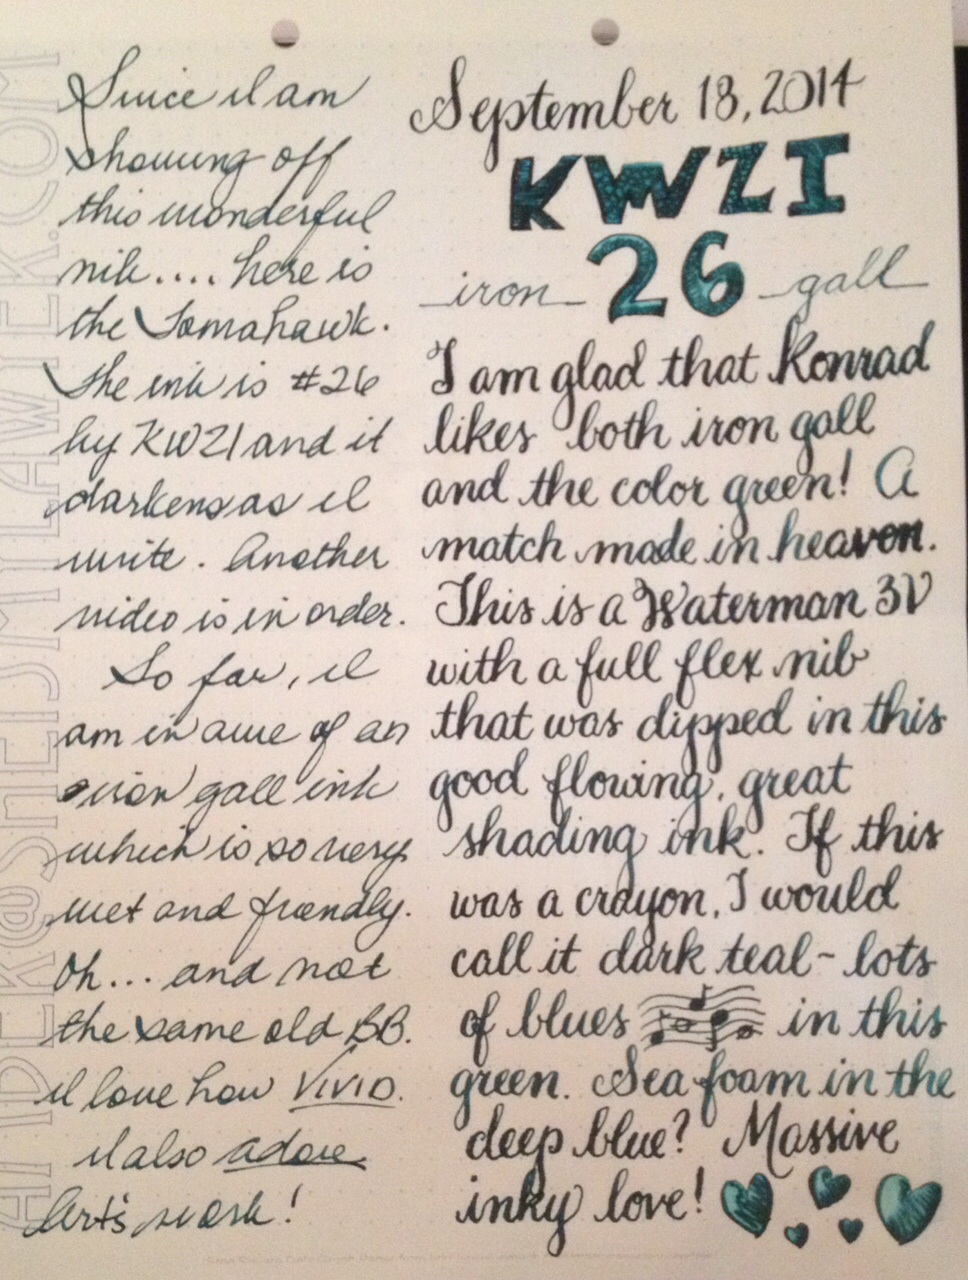 Since I am
showing off
this wonderful
nib.... here is
the Tomahawk.
The ink is #26
by KWZI and it
darkens as I
write. Another
video is in order.
So far, I
am in awe of an
iron gall ink
which is so very
wet and friendly.
Oh... and not
the same old BB.
I love how VIVID.
I also adore
Art's work!
September 18, 2014
KWZI
26
iron gall
I am glad that Konrad
likes both iron gall
and the color green! A
match made in heaven.
This is a Waterman 3V
with a full flex nib
that was dipped in this
good flowing, great
shading ink. If this
was a crayon, I would
call it dark teal - lots
of blues in this
green. Sea foam in the
deep blue? Massive
inky love!